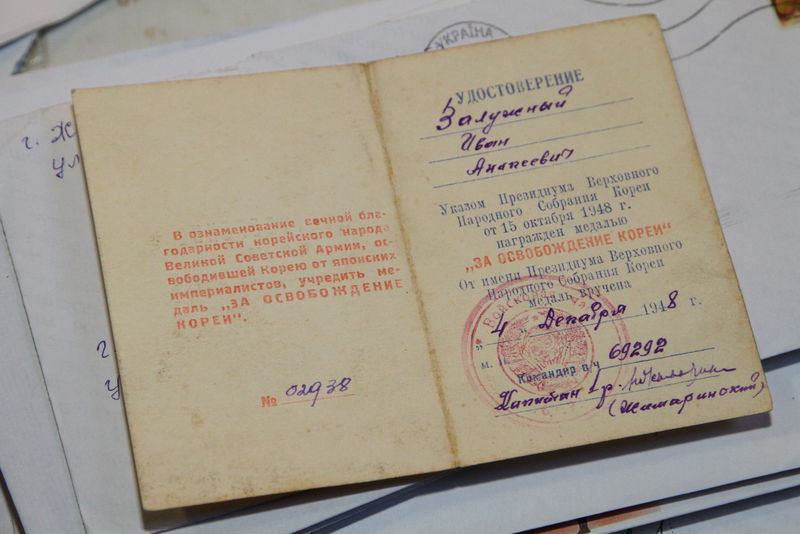 УКРАЇНА
г. Ж
ул
г
у
В ознаменование вечной бла-
годарности корейского народа
Великой Советской Армии, ос-
вободившей Корею от японских
империалистов, учредить ме-
даль „ЗА ОСВОБОЖДЕНИЕ
КОРЕИ“.
№ 02938
УДОСТОВЕРЕНИЕ
Залужный
Иван
Анапеевич
Указом Президиума Верховного
Народного Собрания Кореи
от 15 октября 1948 г.
награжден медалью
„ЗА ОСВОБОЖДЕНИЕ КОРЕИ“
От имени Президиума Верховного
Народного Собрания Кореи
медаль вручена
„4 „ Декабря 1948 г.
м.
Командир в/ч 69292
Капитан
(Жамаринский)
Войсковая